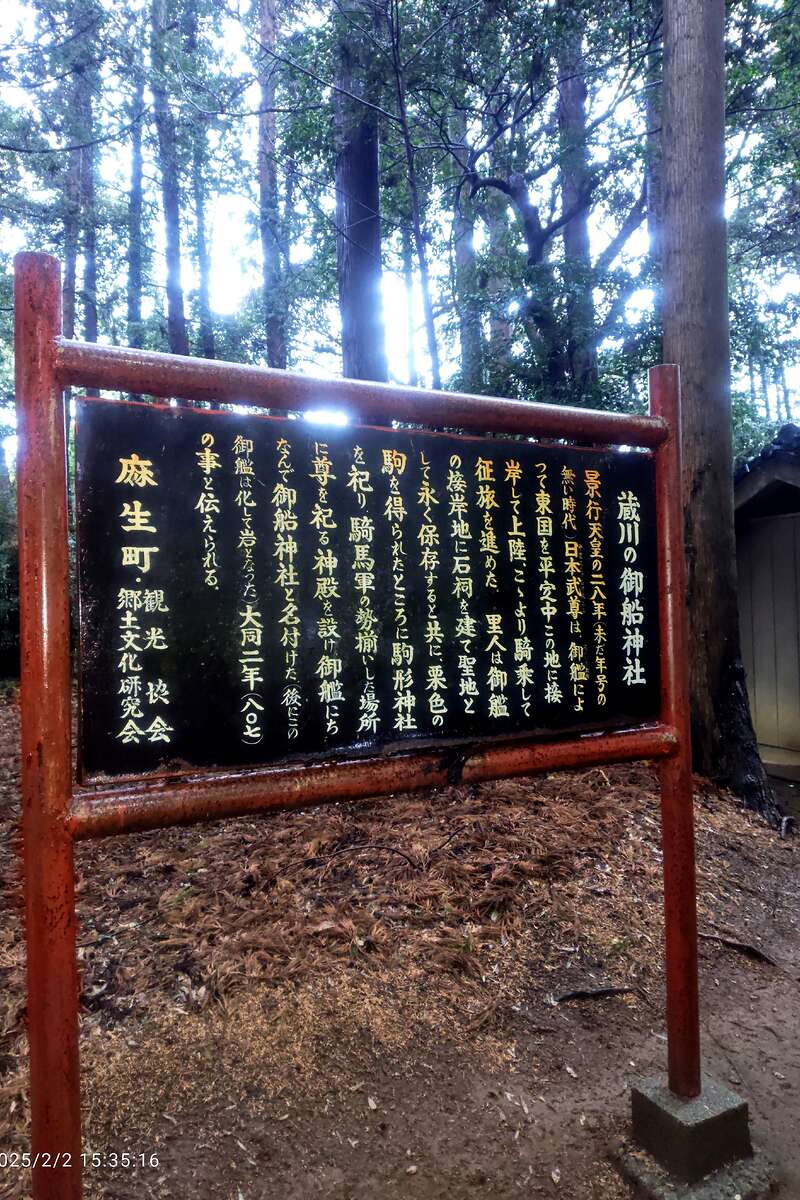 蔵川の御船神社
景行天皇の二八年(未だ年号の
無い時代)日本武尊は、御艦によ
つて東国を平定中この地に接
岸して上陸、こゝより騎乗して
征旅を進めた。里人は御艦
の接岸地に石祠を建て聖地と
して永く保存すると共に栗色の
駒を得られたところに駒形神社
を祀り、騎馬軍の勢揃いした場所
に尊を祀る神殿を設け御艦にち
なんで御船神社と名付けた。(後にこの
御艦は化して岩となった)大同二年(八〇七)
の事と伝えられる。
麻生町・観光協会
郷土文化研究会
025/2/2 15:35:16